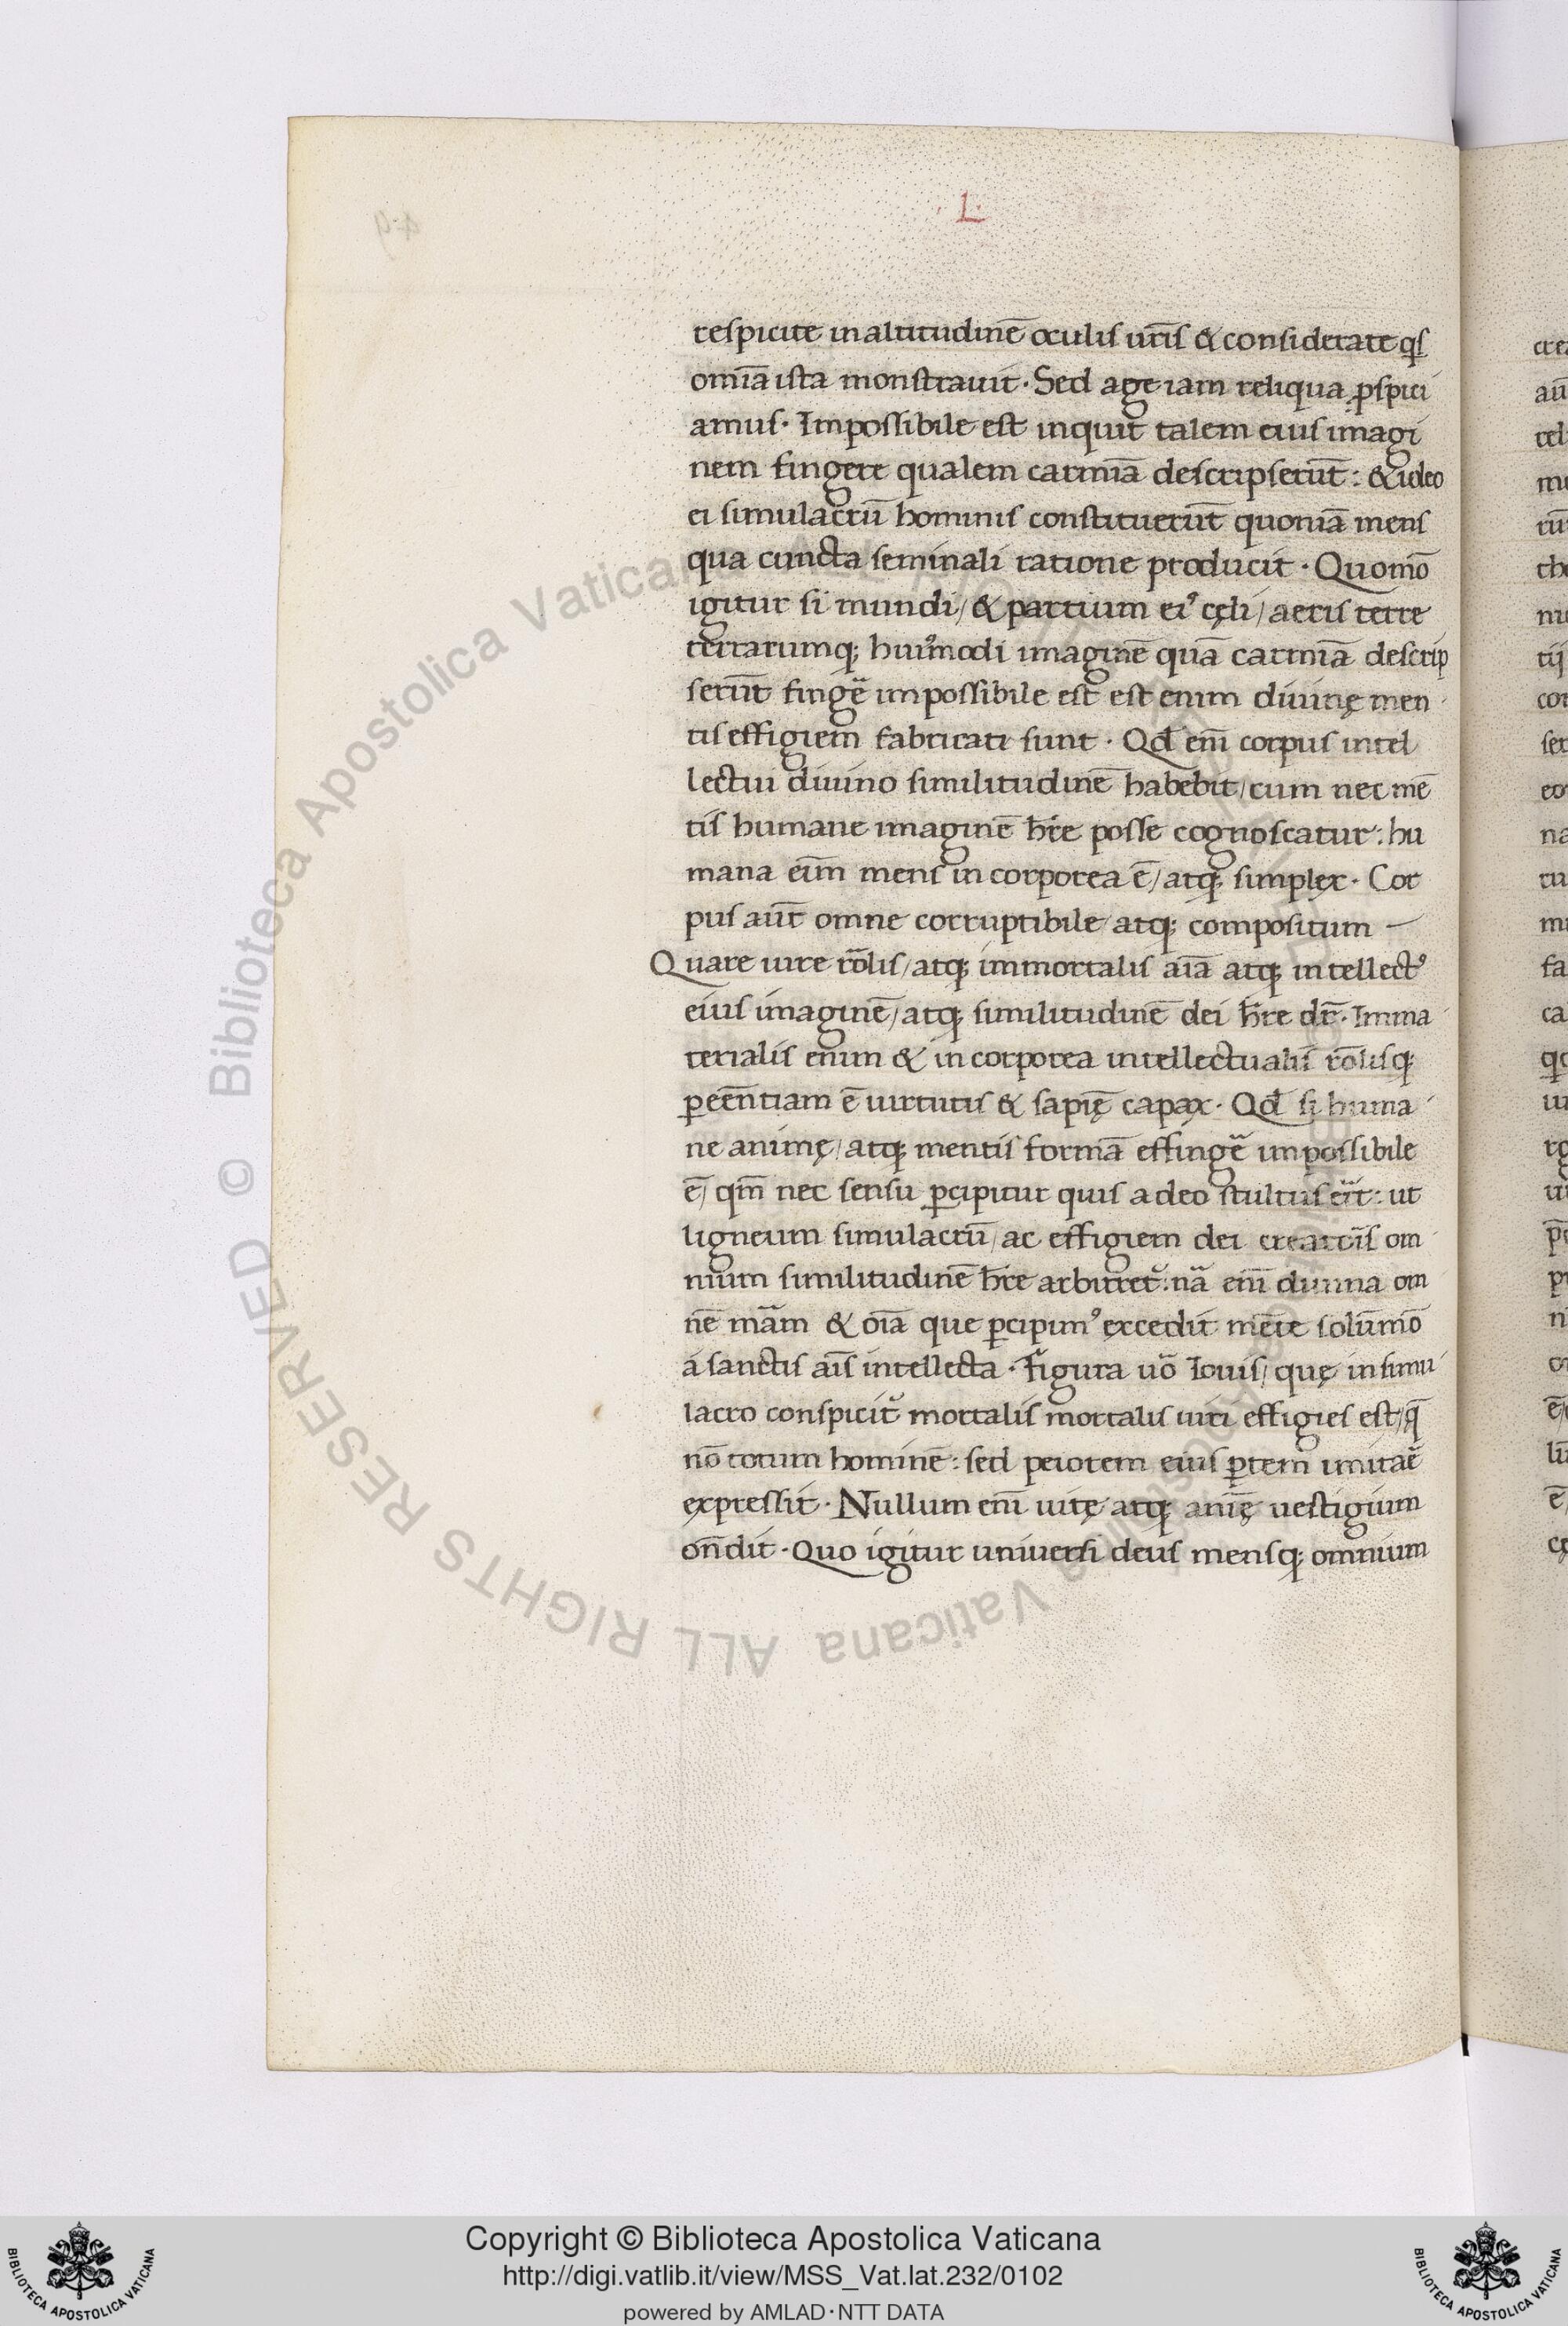 L.
respicite in altitudinē oculis ur̄is & considerate qs
omīa ista monstrauit. Sed age iam reliqua ꝑspici
amus. Impossibile est inquit talem eius imagi
nem fingere qualem carmīa descripserūt: & ideo
ei simulacrū hominis constituerūt quoniā mens
qua cuncta seminali ratione producit. Quomō
igitur si mundi / & partium eiꝰ cęli / aeris terre
terrarumq; huiꝰmodi imaginē quā carmīa descrip
serūt fingē impossibile est est enim diuinę men
tis effigiem fabricati sunt. Qd̄ enī corpus intel
lectui diuino similitudinē habebit / cum nec mē
tis humane imaginē hr̄e posse cognoscatur: hu
mana eīm mens in corporea ē / atq; simplex. Cor
pus aūt omne corruptibile atq; compositum —
Quare uire rōlis / atq; immortalis aīa atq; intellectꝰ
eius imaginē / atq; similitudinē dei hr̄e dr̄. Imma
terialis enim & in corporea intellectualis rōlisq;
ꝑ eēntiam ē uirtutis & sapię capax. Qd̄ si huma
ne animę / atq; mentis formā effingē impossibile
ē / qm̄ nec sensu ꝑcipitur quis adeo stultus erit: ut
ligneum simulacrū / ac effigiem dei creatoīs om
nium similitudinē hr̄e arbitret᷑: nā enī diuina om
nē mām & oīa que ꝑcipimꝰ excedit mēte solūmō
a sanctis aīs intellecta. Figura uō Iouis / quę in simu
lacro conspicit᷑ mortalis mortalis uiri effigies est / q̄
nō totum hominē: sed peiorem eius ꝑtem imitāē
expressit. Nullum enī uitę atq; anīę uestigium
ondīt. Quo igitur uniuersi deus mensq; omnium
© Biblioteca Apostolica Vaticana ALL RIGHTS RESERVED
Copyright © Biblioteca Apostolica Vaticana
http://digi.vatlib.it/view/MSS_Vat.lat.232/0102
powered by AMLAD·NTT DATA
BIBLIOTECA APOSTOLICA VATICANA
BIBLIOTECA APOSTOLICA VATICANA